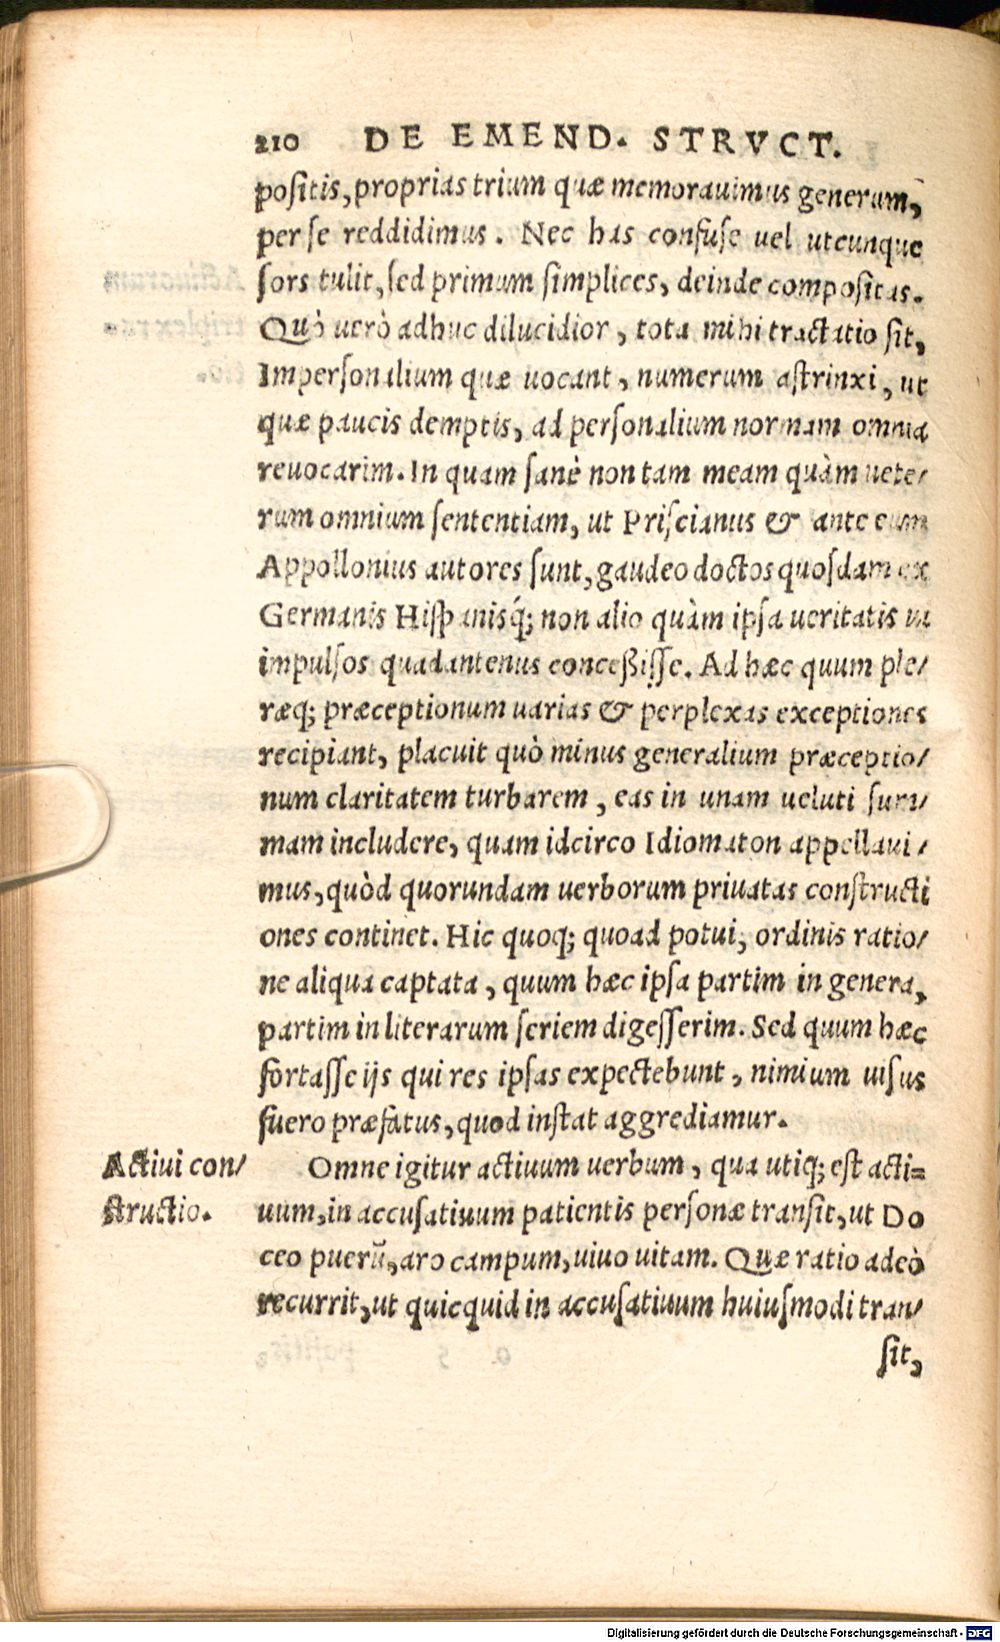 210 DE EMEND. STRVCT.
poſitis, proprias trium quæ memorauimus generum,
per ſe reddidimus. Nec has confuſe uel utcunque
ſors tulit, ſed primum ſimplices, deinde compoſitas.
Quò uerò adhuc dilucidior, tota mihi tractatio ſit,
Imperſonalium quæ uocant, numerum aſtrinxi, ut
quæ paucis demptis, ad perſonalium normam omnia
reuocarim. In quam ſanè non tam meam quàm uete/
rum omnium ſententiam, ut Priſcianus & ante eum
Appollonius autores ſunt, gaudeo doctos quoſdam ex
Germanis Hiſpanisq́; non alio quàm ipſa ueritatis ui
impulſos quadantenus conceßiſſe. Ad hæc quum ple/
ræq; præceptionum uarias & perplexas exceptiones
recipiant, placuit quò minus generalium præceptio/
num claritatem turbarem, eas in unam ueluti ſum/
mam includere, quam idcirco Idiomaton appellaui/
mus, quòd quorundam uerborum priuatas conſtructi
ones continet. Hic quoq; quoad potui, ordinis ratio/
ne aliqua captata, quum hæc ipſa partim in genera,
partim in literarum ſeriem digeſſerim. Sed quum hæc
fortaſſe ijs qui res ipſas expectebunt, nimium uiſus
fuero præfatus, quod inſtat aggrediamur.
Actiui con/
ſtructio.
Omne igitur actiuum uerbum, qua utiq; eſt acti=
uum, in accuſatiuum patientis perſonæ tranſit, ut Do
ceo puerū, aro campum, uiuo uitam. Quæ ratio adeò
recurrit, ut quicquid in accuſatiuum huiuſmodi tran/
ſit,
Digitalisierung gefördert durch die Deutsche Forschungsgemeinschaft - DFG